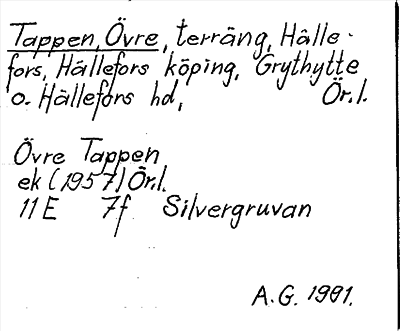 Tappen, Övre, terräng, Hälle-
fors, Hällefors köping, Grythytte
o. Hällefors hd, Ör.l.
Övre Tappen
ek (1957) Ör.l.
11E 7f Silvergruvan
A.G. 1981.